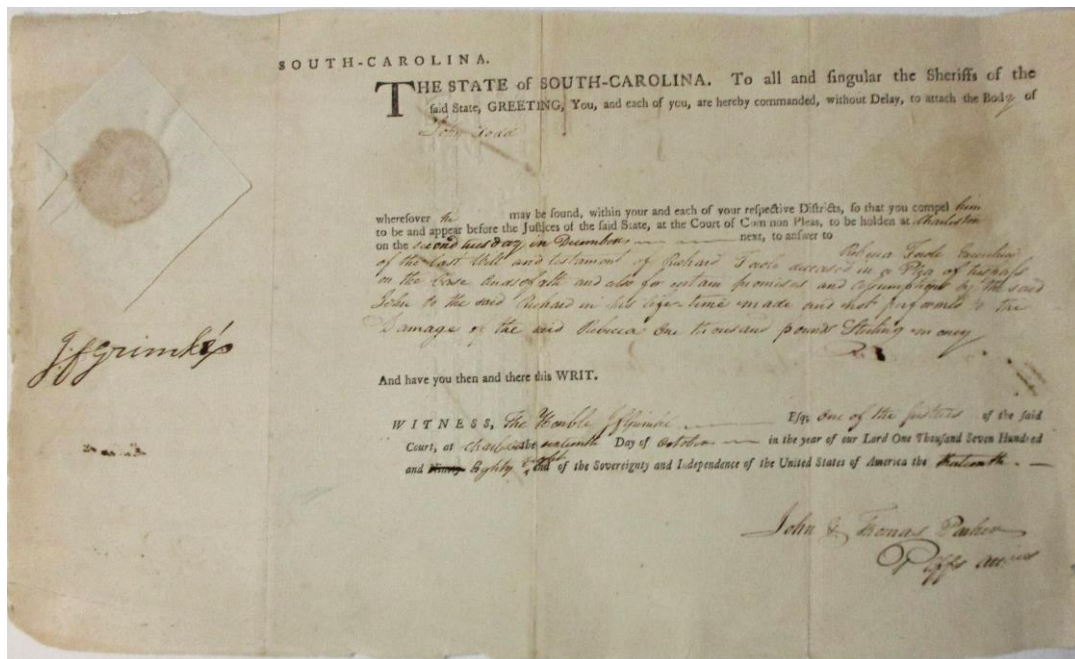 SOUTH-CAROLINA.
THE STATE of SOUTH-CAROLINA. To all and singular the Sheriffs of the
said State, GREETING, You, and each of you, are hereby commanded, without Delay, to attach the Body of
John Todd
wheresoever he may be found, within your and each of your respective Districts, so that you compel him
to be and appear before the Justices of the said State, at the Court of Common Pleas, to be holden at Charleston
on the second tuesday in December next, to answer to
Rebecca Toole Executrix
of the last Will and testament of Richard Toole deceased in a Plea of trespass
on the Case and also for certain promises and assumptions by the said
John to the said Richard in his life-time made and not performed to the
Damage of the said Rebecca One thousand pounds Sterling money
J F Grimké
And have you then and there this WRIT.
WITNESS, The Honble J F Grimké Esq; One of the Justices of the said
Court, at the sixteenth Day of October in the year of our Lord One Thousand Seven Hundred
and Ninety Eighty eight and of the Sovereignty and Independence of the United States of America the thirteenth.
John & Thomas Parker
Plffs Attnies